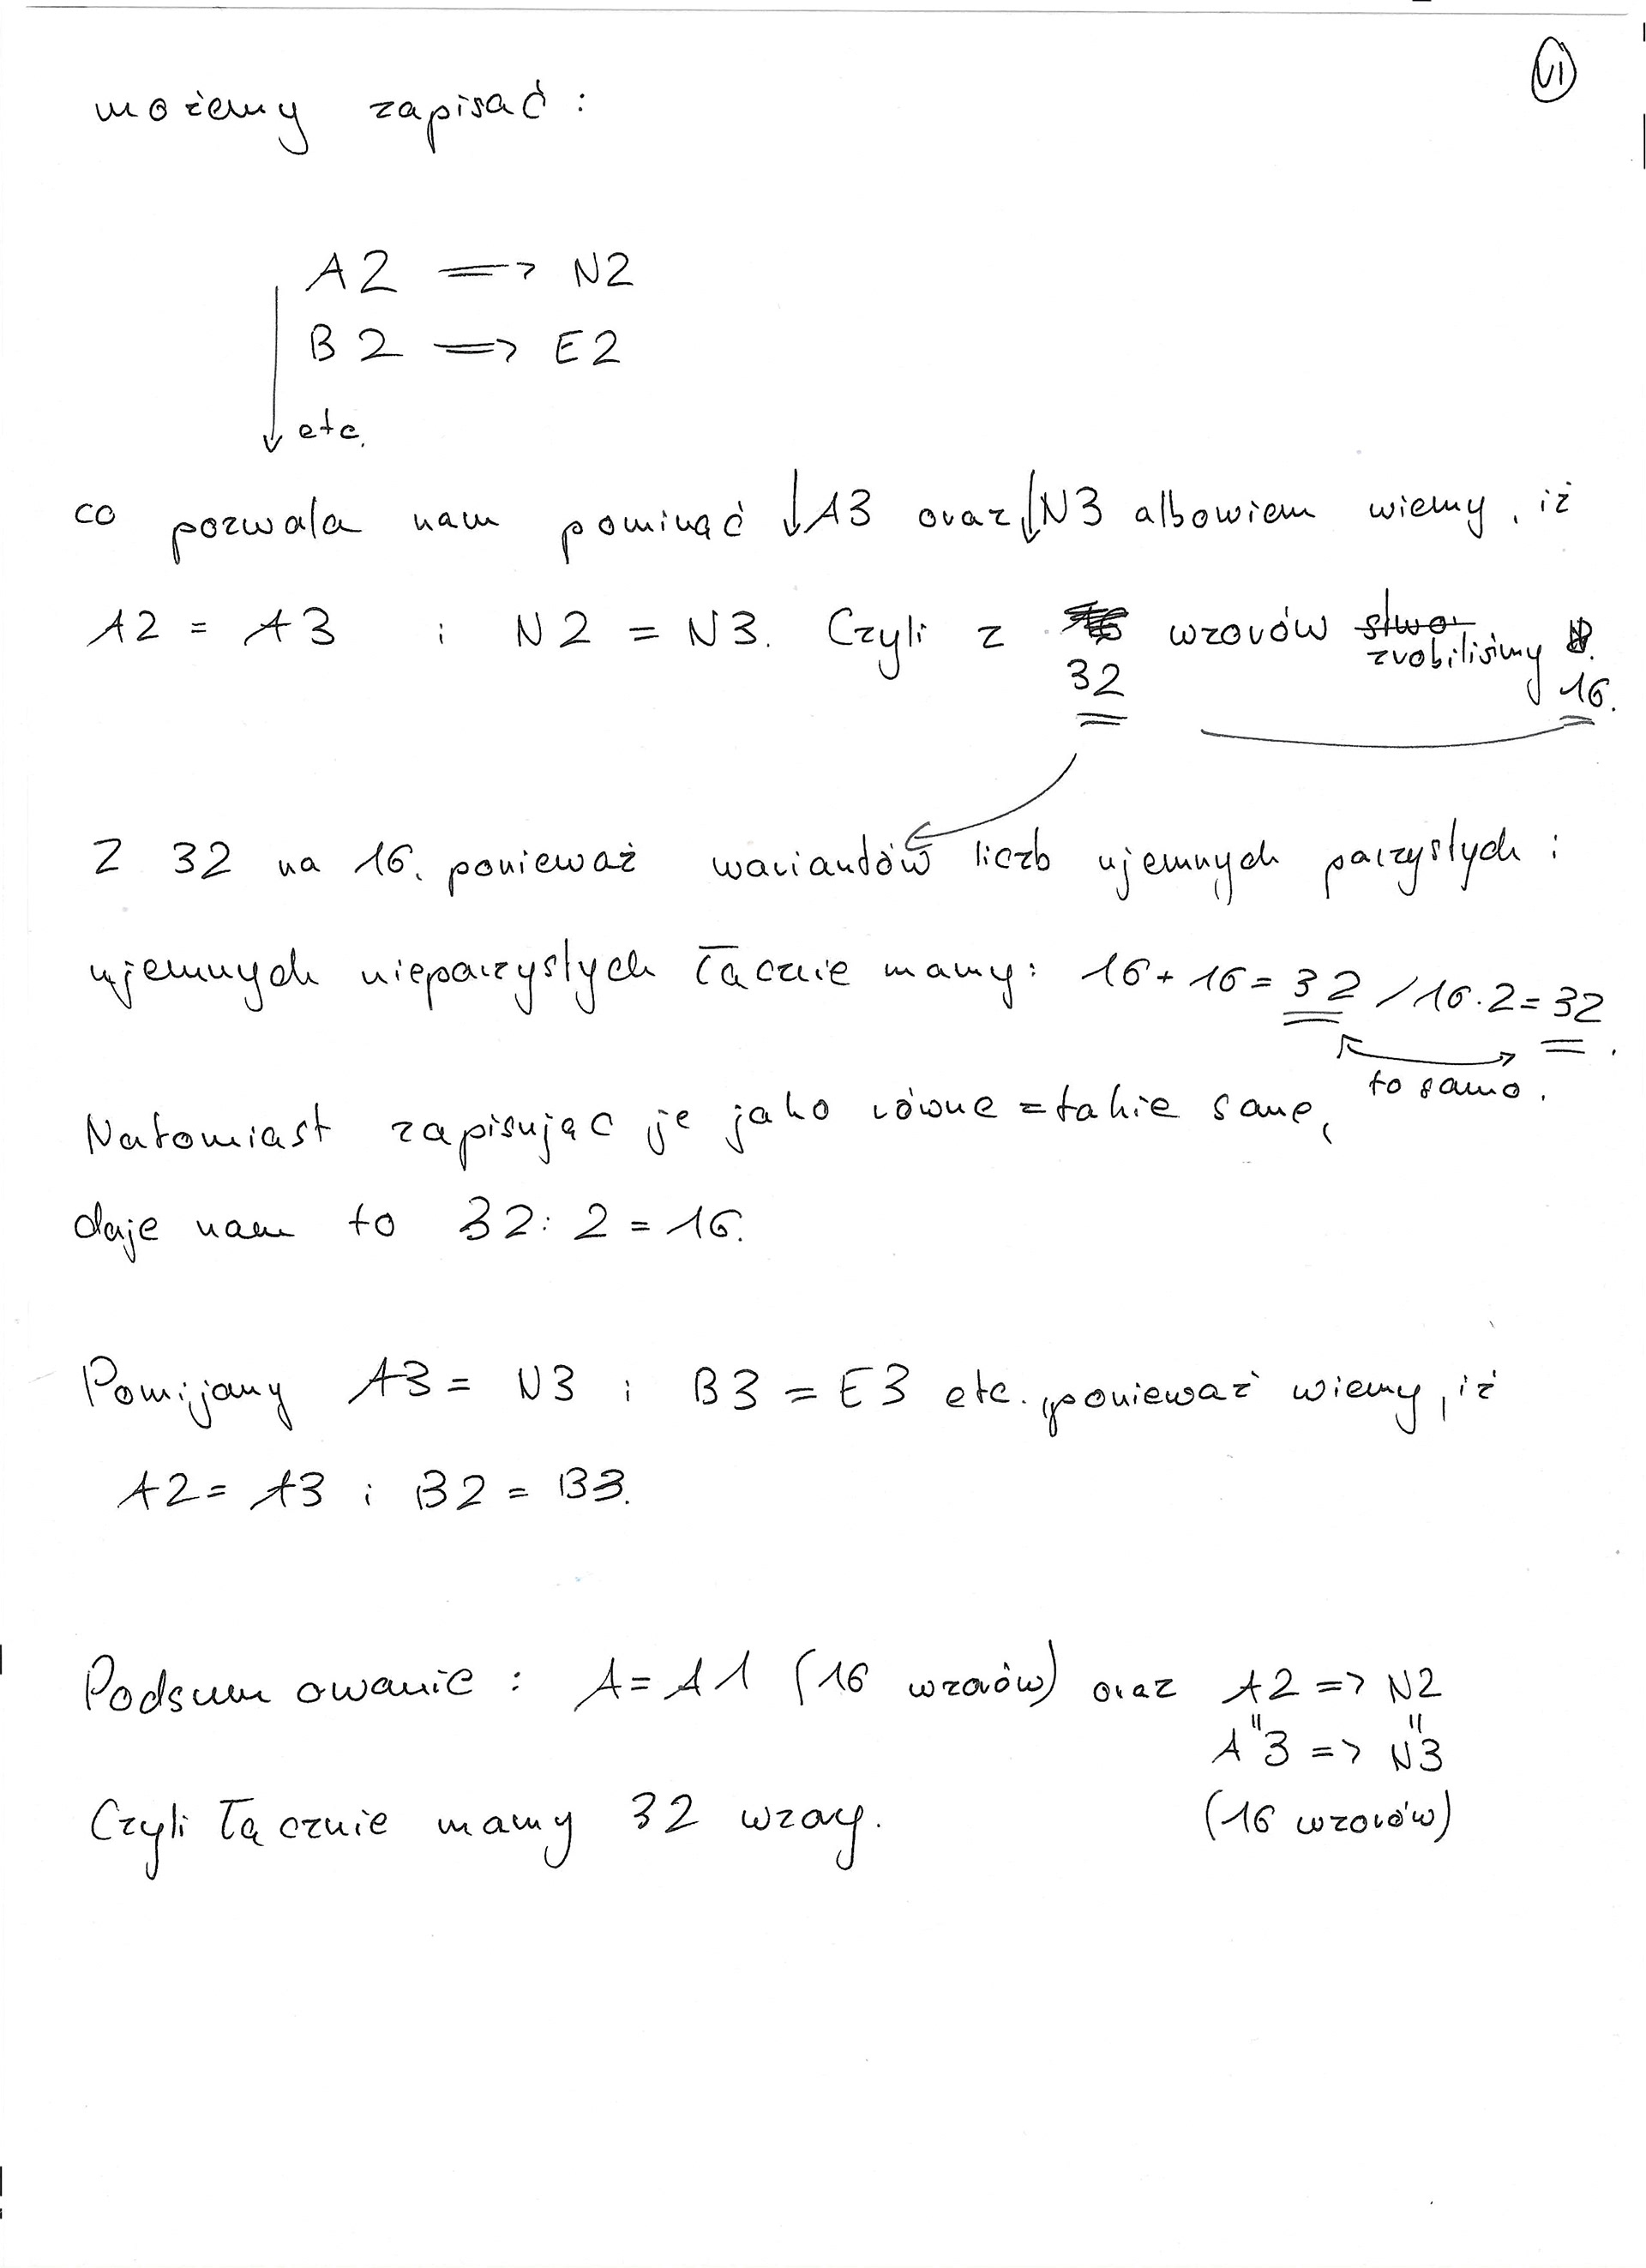 VI
możemy zapisać:
A2 => N2
B2 => E2
↓ etc.
co pozwala nam pominąć ↓A3 oraz ↓N3 albowiem wiemy, iż
A2 = A3 i N2 = N3. Czyli z 32 wzorów zrobiliśmy 16.
Z 32 na 16, ponieważ wariantów liczb ujemnych parzystych i
ujemnych nieparzystych łącznie mamy: 16 + 16 = 32 / 16 · 2 = 32.
to samo.
Natomiast zapisując je jako równe = takie same,
daje nam to 32 : 2 = 16.
Pomijamy A3 = N3 i B3 = E3 etc., ponieważ wiemy, iż
A2 = A3 i B2 = B3.
Podsumowanie: A = A1 (16 wzorów) oraz A2 => N2
" "
A3 => N3
(16 wzorów)
Czyli łącznie mamy 32 wzory.